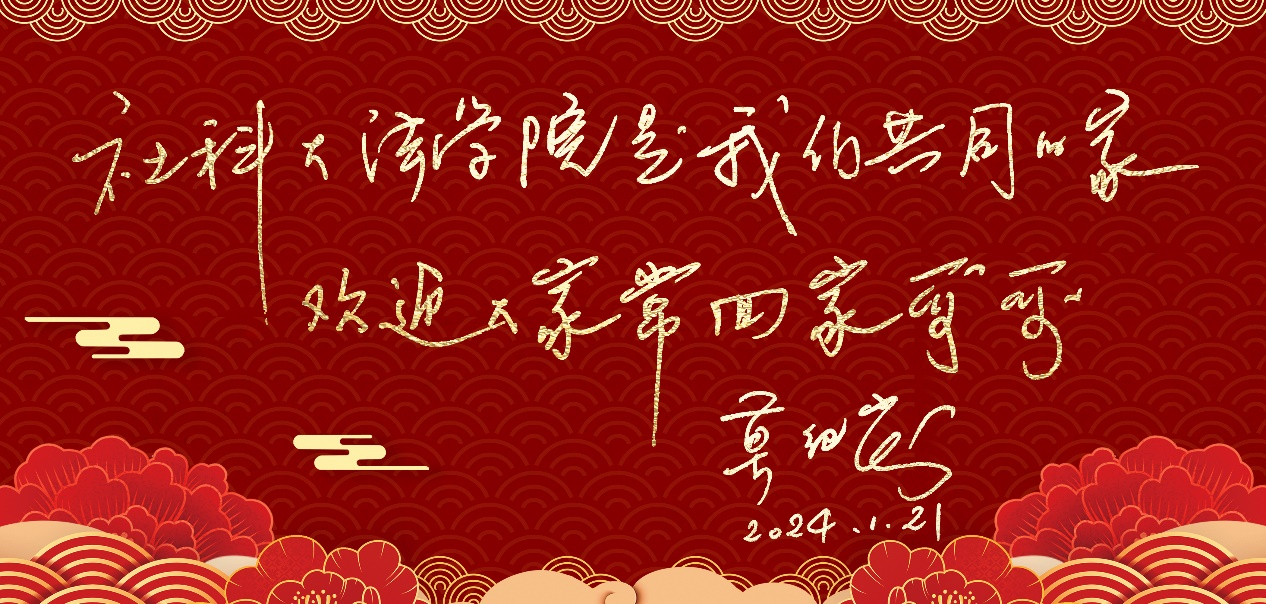 社科大法学院是我们共同的家
欢迎大家常回家看看
莫纪宏
2024.1.21